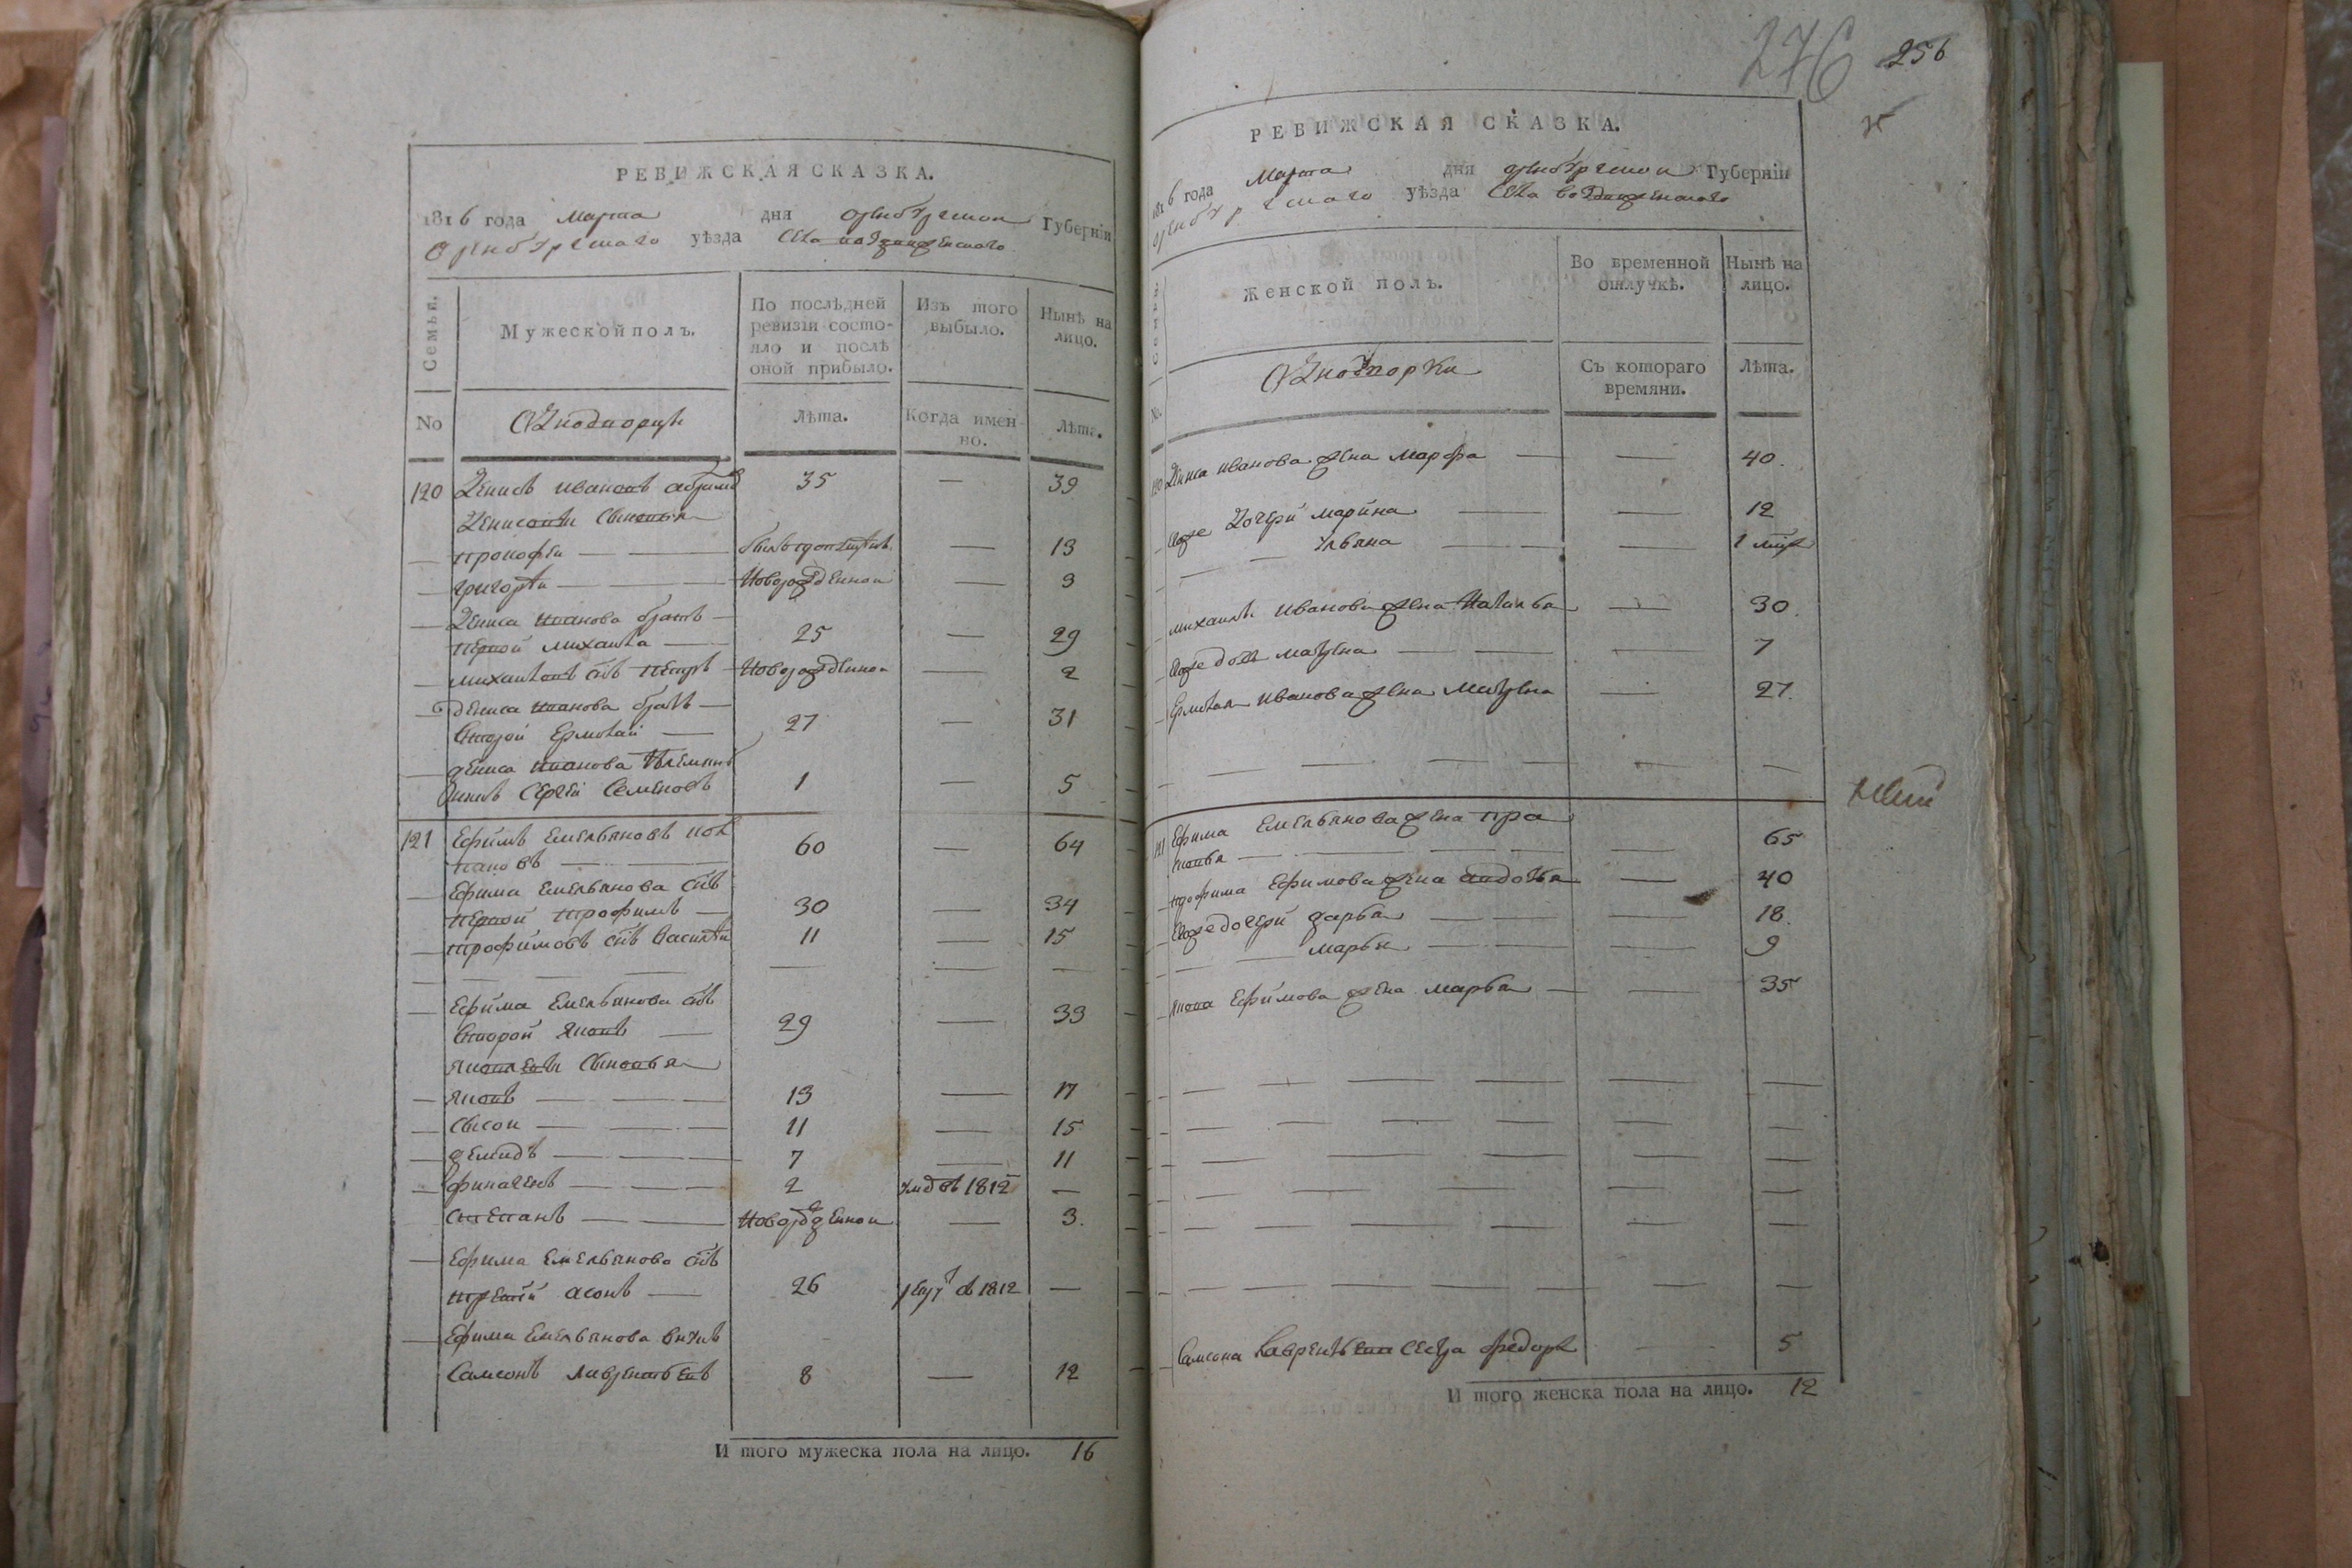 РЕВИЖСКАЯ СКАЗКА.
1816 года Марта дня Оренбургской Губерніи
Оренбургскаго уѣзда Села Воздвиженскаго
Семьи.
Мужеской полъ.
По послѣдней ревизіи состояло и послѣ оной прибыло.
Изъ того выбыло.
Нынѣ на лицо.
No
Однодворцы
Лѣта.
Когда именно.
Лѣта.
120 Денисъ Ивановъ 35 — 39
Денисовы сыновья
— Прокофеи — 13
— Григорѣи — Новорожденной — 3
— Дениса Иванова братъ —
первой Михаила — 25 — 29
— Михаиловъ снъ Петръ — Новорожденной — 2
— Дениса Иванова братъ —
второй Ермолай — 27 — 31
— Дениса Иванова племян
никъ Сергеи Семеновъ 1 — 5
121 Ефимъ Емельяновъ
60 — 64
— Ефима Емельянова снъ
первой Трофимъ — 30 — 34
— Трофимовъ снъ Василѣи 11 — 15
— Ефима Емельянова снъ
второй Яковъ — 29 — 33
Яковлевы сыновья
— Яковъ — 13 — 17
— Сысои — 11 — 15
— Демидъ — 7 — 11
— 2 умъ въ 1812 —
Степанъ — Новорожденной — 3.
— Ефима Емельянова снъ
третій 26 рекру въ 1812 —
— Ефима Емельянова внукъ
Самсонъ Лаврентьевъ 8 — 12
И того мужеска пола на лицо. 16
276 256
РЕВИЖСКАЯ СКАЗКА.
1816 года Марта дня Оренбургской Губерніи
Оренбургскаго уѣзда Села Воздвиженскаго
Семьи.
Женской полъ.
Во временной отлучкѣ.
Нынѣ на лицо.
No.
Однодворки
Съ котораго времяни.
Лѣта.
120 Дениса Иванова жена Марфа — — 40.
— Ево же дочери Марина — — 12
— — Ульяна — — 1
— Михаилы Иванова жена Наталья — 30.
— Ево же дочь Матрена — — — 7
— Ермолая Иванова жена Матрена — 27.
121 Ефима Емельянова жена Пра
сковья — — 65
— Трофима Ефимова жена Авдотья — 40
— Ево же дочери Дарья — — — 18.
— — Марья — — — 9
— Якова Ефимова жена Марья — — 35
— Самсона Лаврентьева сестра Федора — 5
И того женска пола на лицо. 12